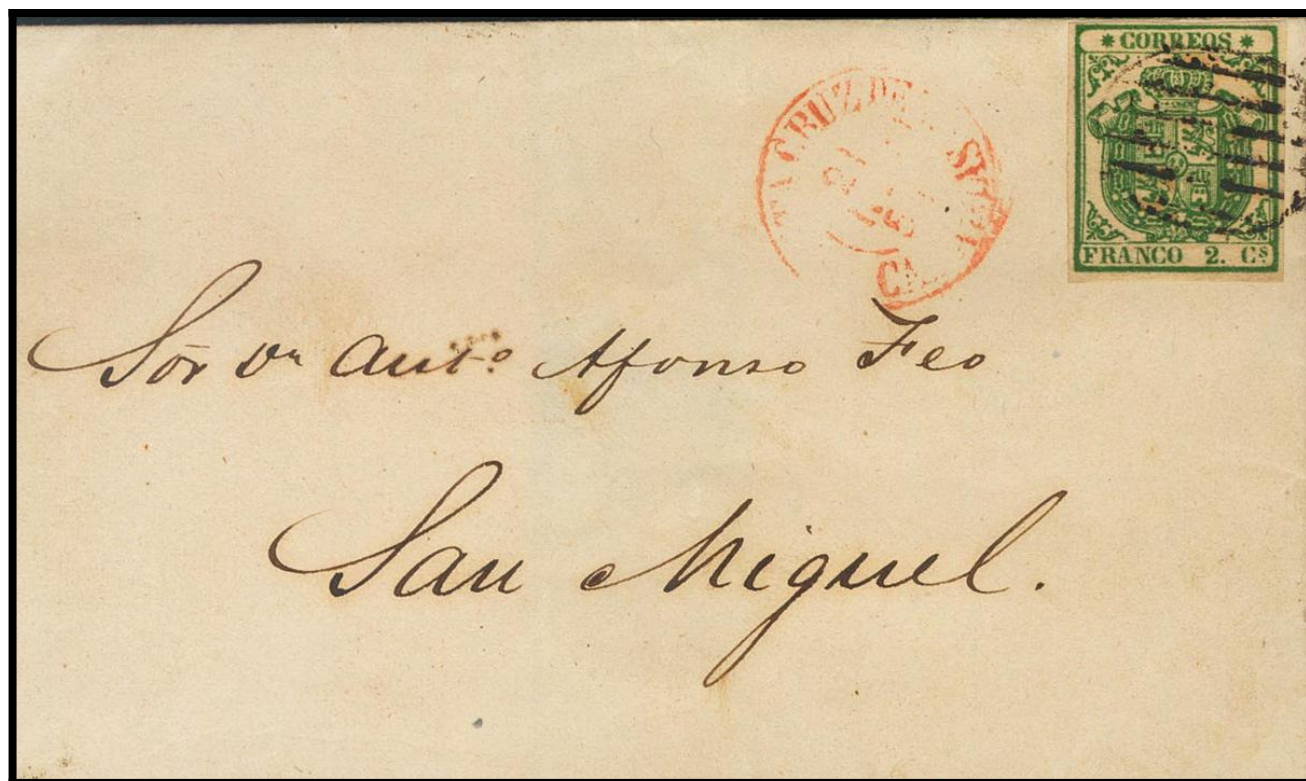 * CORREOS *
FRANCO 2. Cs
TA CRUZ DE
CA
Sōr Dn Anto Afonso Feo
San Miguel.